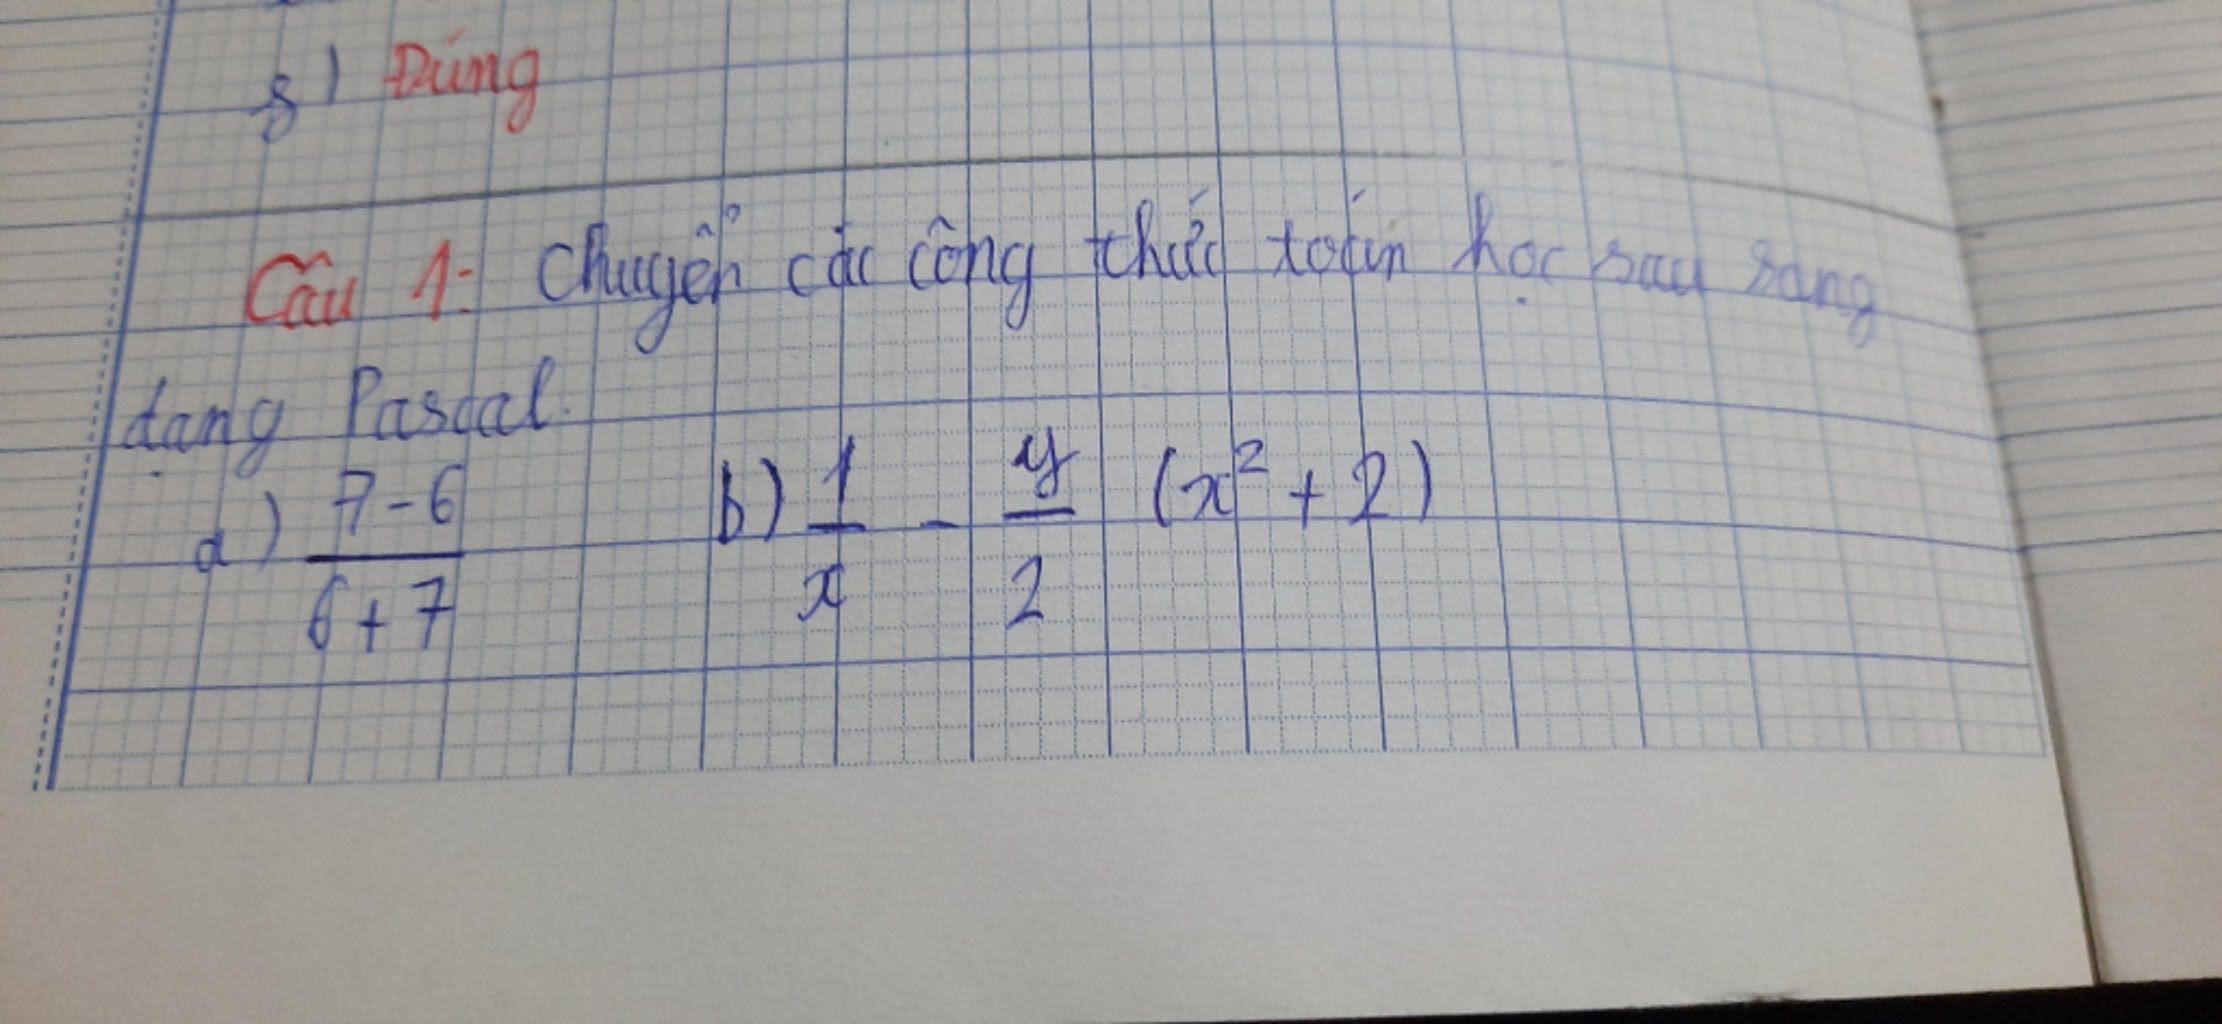 g) Đúng
Câu 1: Chuyển các công thức toán học sau sang
dạng Pascal.
a) (7-6)/(6+7) b) 1/x - y/2 (x² + 2)